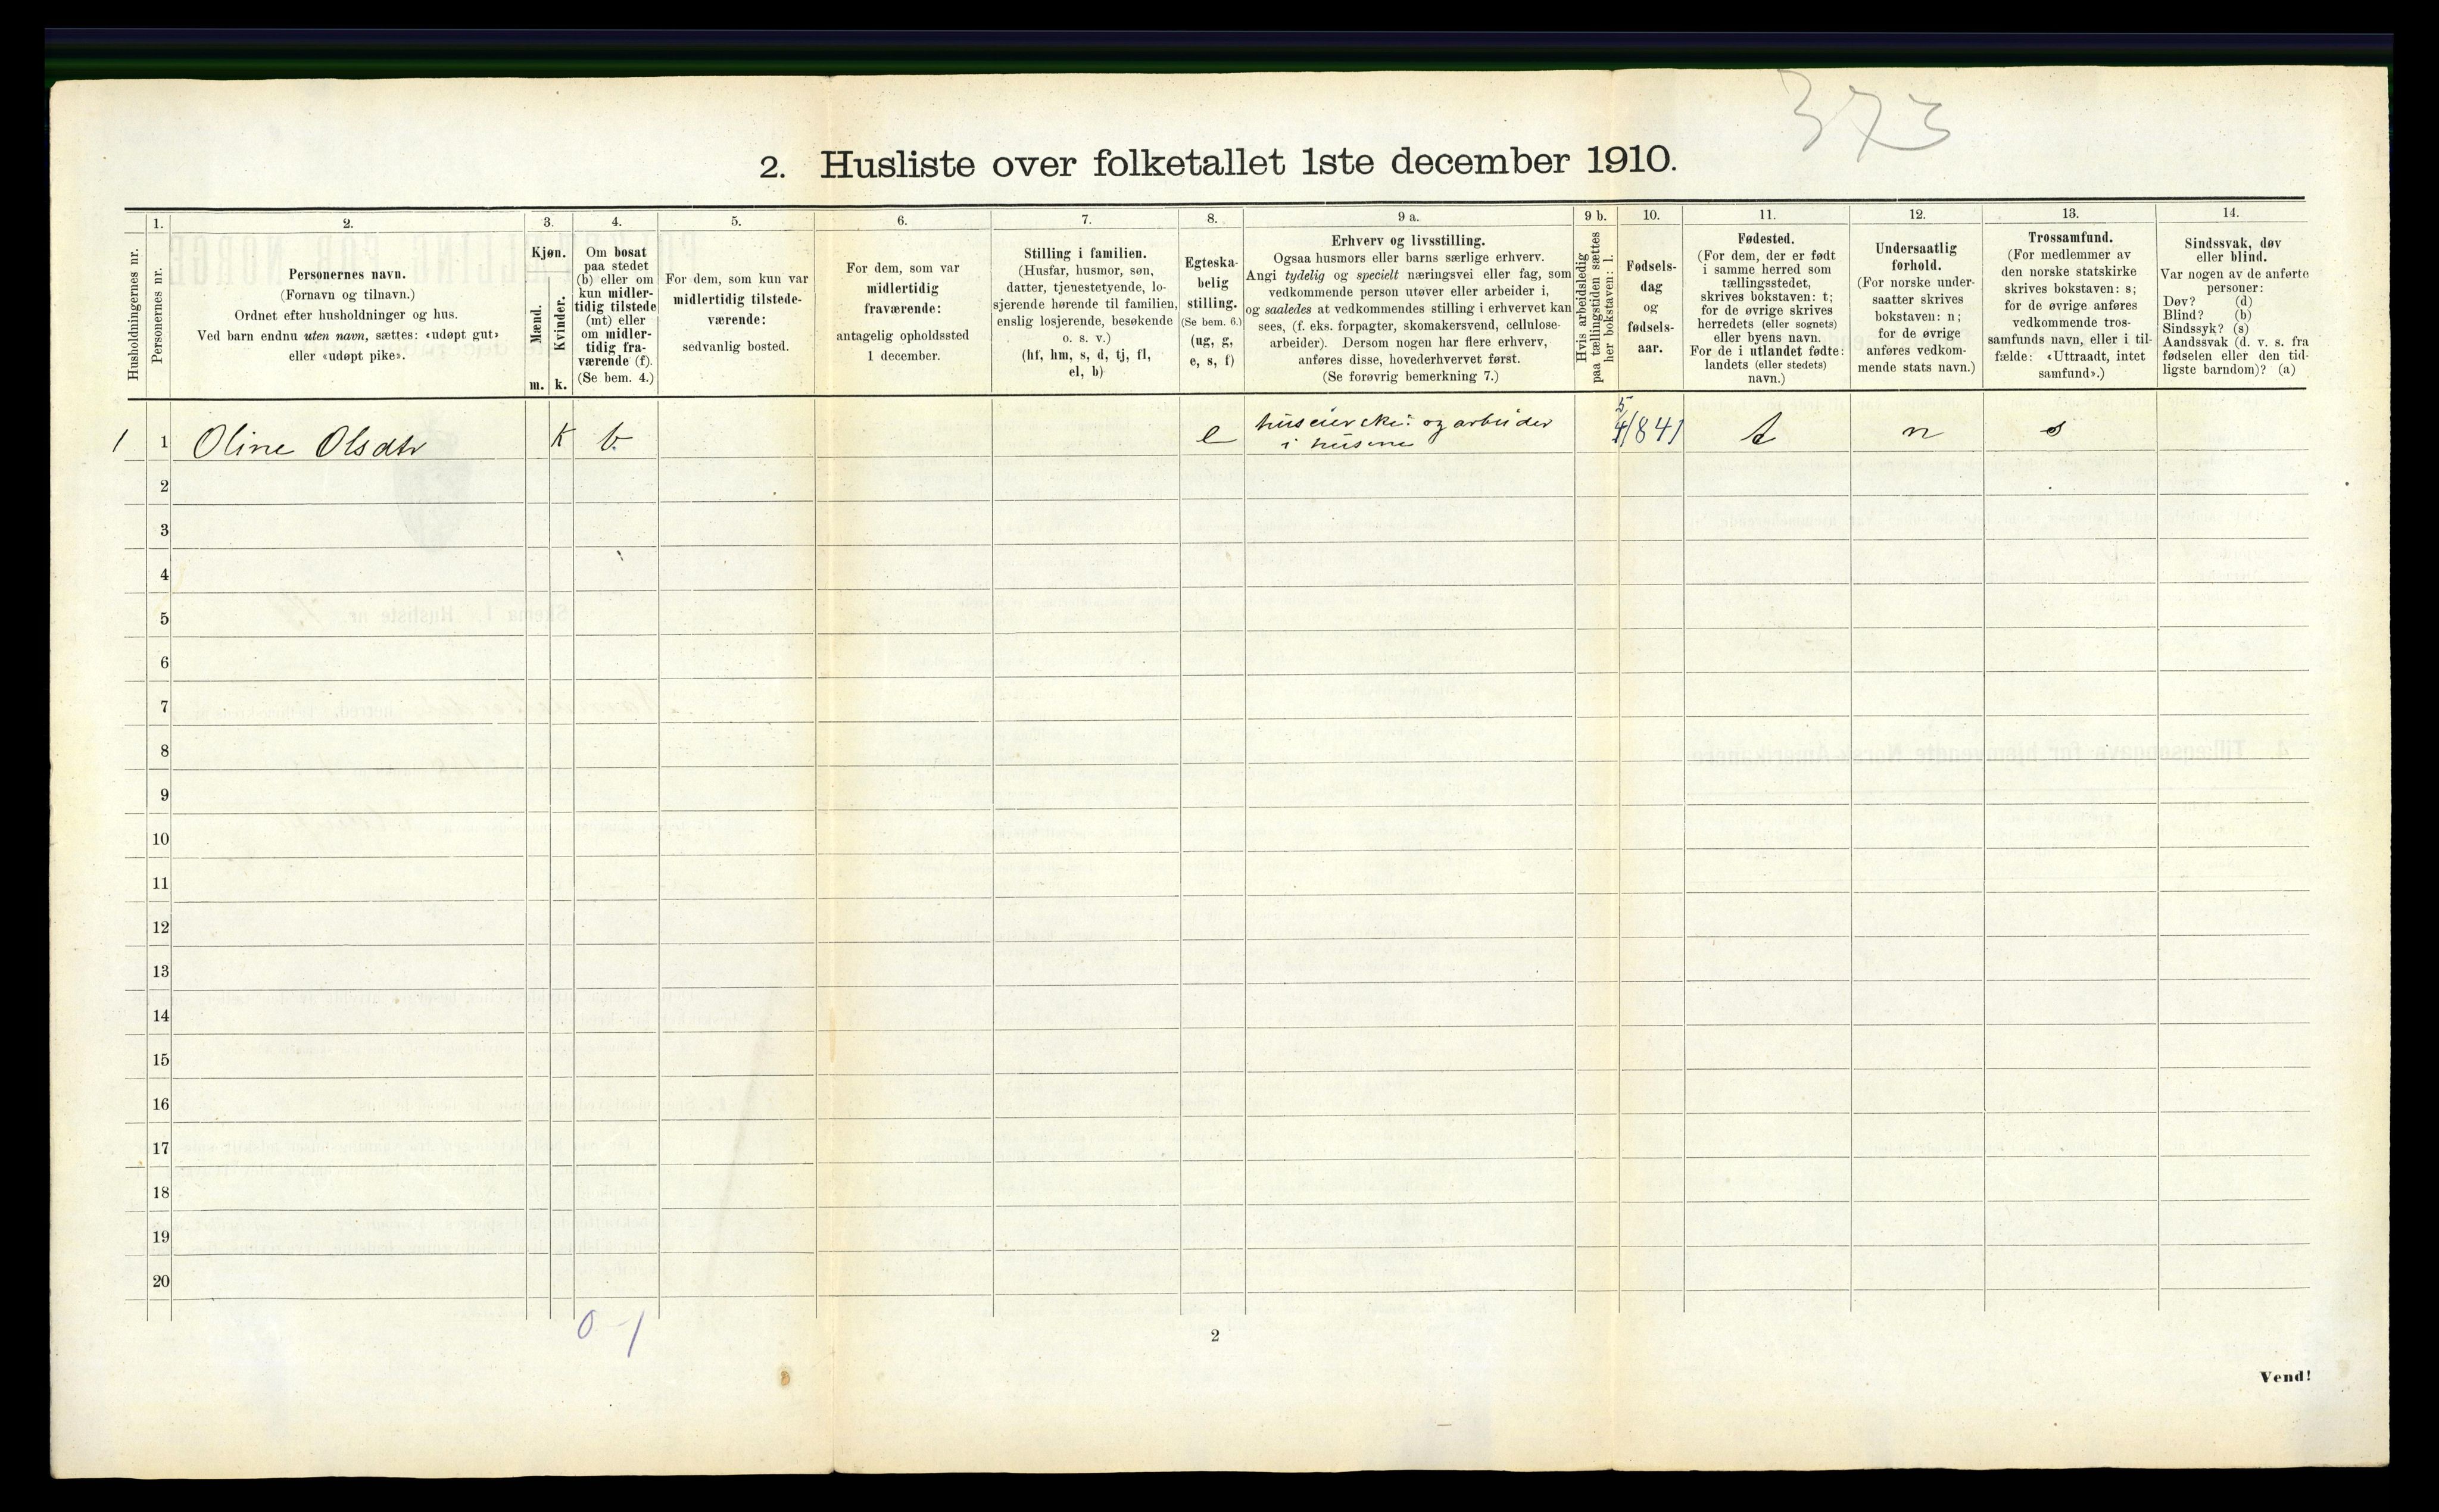 373
2. Husliste over folketallet 1ste december 1910.
Husholdningernes nr.
1.
Personernes nr.
2.
Personernes navn.
(Fornavn og tilnavn.)
Ordnet efter husholdninger og hus.
Ved barn endnu uten navn, sættes: «udøpt gut»
eller «udøpt pike».
3.
Kjøn.
Mænd.
Kvinder.
m. k.
4.
Om bosat
paa stedet
(b) eller om
kun midler-
tidig tilstede
(mt) eller
om midler-
tidig fra-
værende (f).
(Se bem. 4.)
5.
For dem, som kun var
midlertidig tilstede-
værende:
sedvanlig bosted.
6.
For dem, som var
midlertidig
fraværende:
antagelig opholdssted
1 december.
7.
Stilling i familien.
(Husfar, husmor, søn,
datter, tjenestetyende, lo-
sjerende hørende til familien,
enslig losjerende, besøkende
o. s. v.)
(hf, hm, s, d, tj, fl,
el, b)
8.
Egteska-
belig
stilling.
(Se bem. 6.)
(ug, g,
e, s, f)
9 a.
Erhverv og livsstilling.
Ogsaa husmors eller barns særlige erhverv.
Angi tydelig og specielt næringsvei eller fag, som
vedkommende person utøver eller arbeider i,
og saaledes at vedkommendes stilling i erhvervet kan
sees, (f. eks. forpagter, skomakersvend, cellulose-
arbeider). Dersom nogen har flere erhverv,
anføres disse, hovederhvervet først.
(Se forøvrig bemerkning 7.)
9 b.
Hvis arbeidsledig
paa tællingstiden sættes
her bokstaven: l.
10.
Fødsels-
dag
og
fødsels-
aar.
11.
Fødested.
(For dem, der er født
i samme herred som
tællingsstedet,
skrives bokstaven: t;
for de øvrige skrives
herredets (eller sognets)
eller byens navn.
For de i utlandet fødte:
landets (eller stedets)
navn.)
12.
Undersaatlig
forhold.
(For norske under-
saatter skrives
bokstaven: n;
for de øvrige
anføres vedkom-
mende stats navn.)
13.
Trossamfund.
(For medlemmer av
den norske statskirke
skrives bokstaven: s;
for de øvrige anføres
vedkommende tros-
samfunds navn, eller i til-
fælde: «Uttraadt, intet
samfund».)
14.
Sindssvak, døv
eller blind.
Var nogen av de anførte
personer:
Døv? (d)
Blind? (b)
Sindssyk? (s)
Aandssvak (d. v. s. fra
fødselen eller den tid-
ligste barndom)? (a)
1 1 Oline Olsdtr K b. e og arbeider 5/4 1841 t n s
i husene
2
3
4
5
6
7
8
9
10
11
12
13
14
15
16
17
18
19
20
0-1
2
Vend!